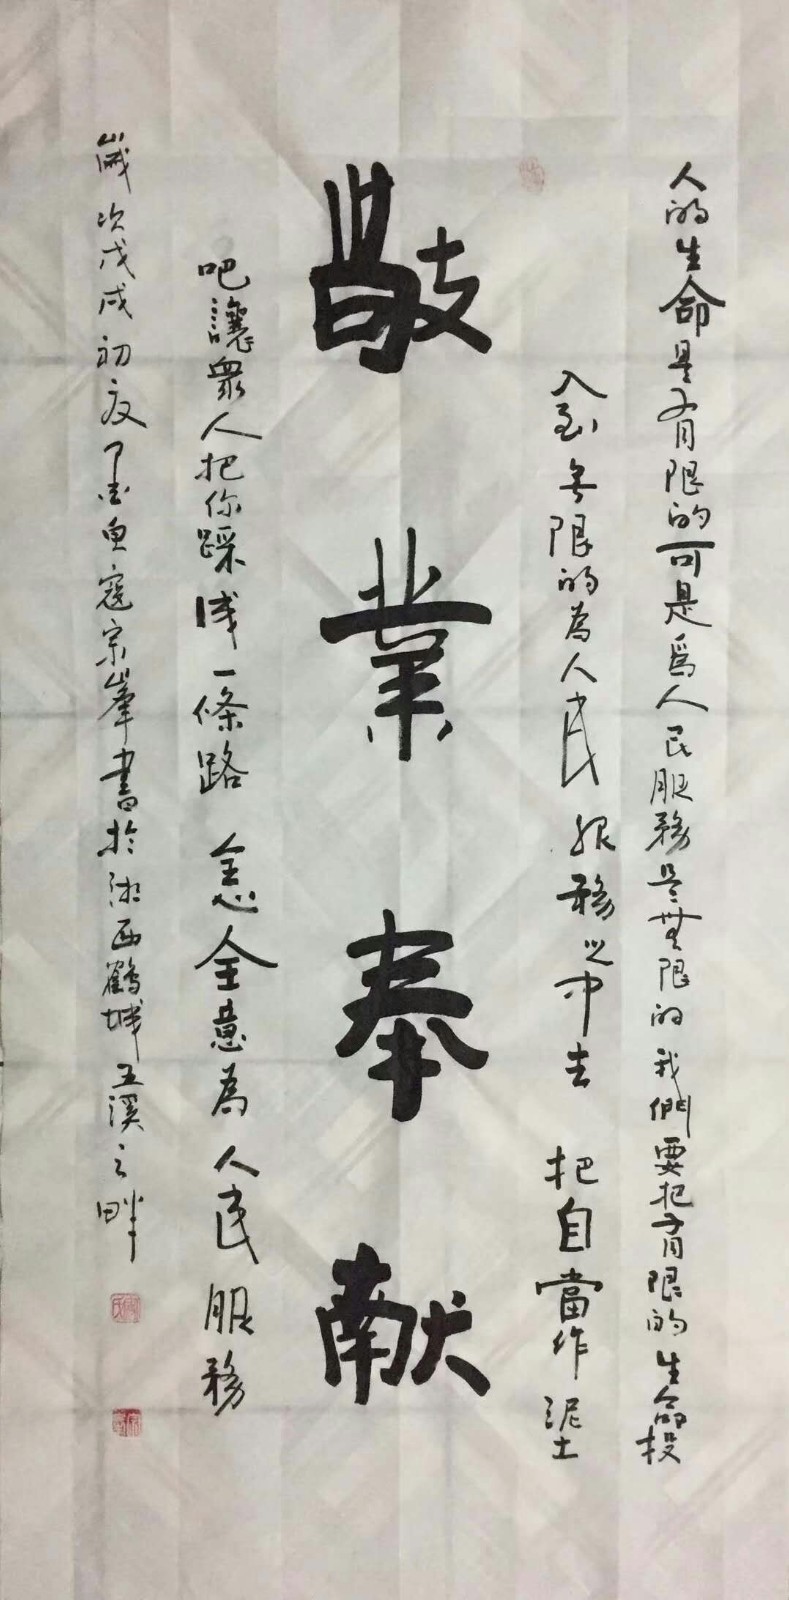 人的生命是有限的可是為人民服務是無限的我們要把有限的生命投
入到無限的為人民服務之中去 把自當作泥土
敬業奉献
吧讓眾人把你踩成一條路 全心全意為人民服務
歲次戊戌初夏墨魚寇宗峯書於湘西鶴城五溪之畔